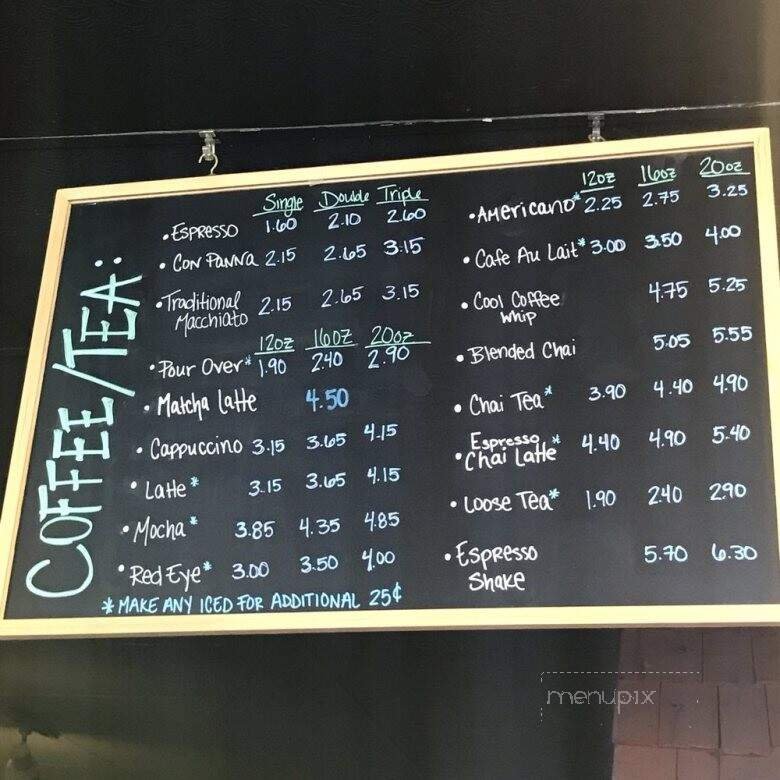 COFFEE/TEA:
Single Double Triple
• Espresso 1.60 2.10 2.60
• Con Panna 2.15 2.65 3.15
• Traditional Macchiato 2.15 2.65 3.15
12oz 16oz 20oz
• Pour Over* 1.90 2.40 2.90
• Matcha Latte 4.50
• Cappuccino 3.15 3.65 4.15
• Latte* 3.15 3.65 4.15
• Mocha* 3.85 4.35 4.85
• Red Eye* 3.00 3.50 4.00
* MAKE ANY ICED FOR ADDITIONAL 25¢
12oz 16oz 20oz
• Americano* 2.25 2.75 3.25
• Cafe Au Lait* 3.00 3.50 4.00
• Cool Coffee Whip 4.75 5.25
• Blended Chai 5.05 5.55
• Chai Tea* 3.90 4.40 4.90
• Espresso Chai Latte* 4.40 4.90 5.40
• Loose Tea* 1.90 2.40 2.90
• Espresso Shake 5.70 6.30
menupix